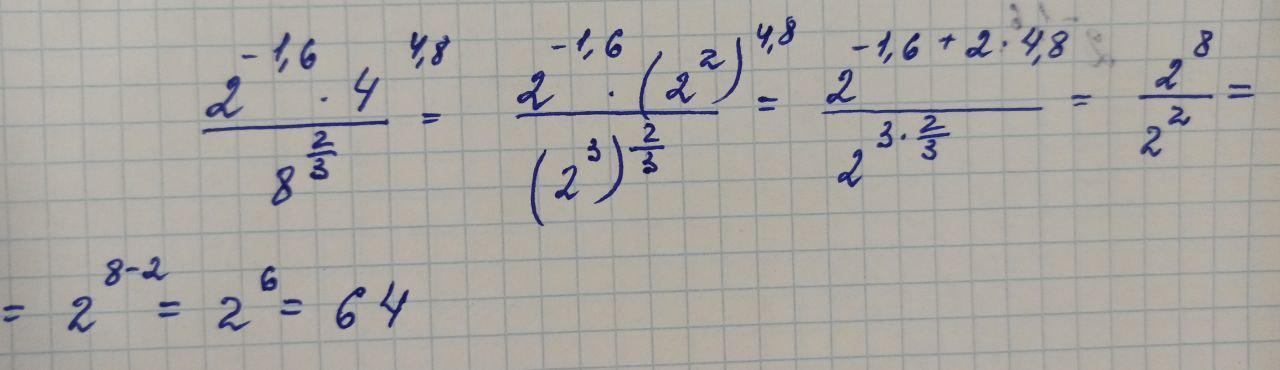 \frac{2^{-1,6} \cdot 4^{4,8}}{8^{\frac{2}{3}}} = \frac{2^{-1,6} \cdot (2^2)^{4,8}}{(2^3)^{\frac{2}{3}}} = \frac{2^{-1,6+2 \cdot 4,8}}{2^{3 \cdot \frac{2}{3}}} = \frac{2^8}{2^2} =
= 2^{8-2} = 2^6 = 64